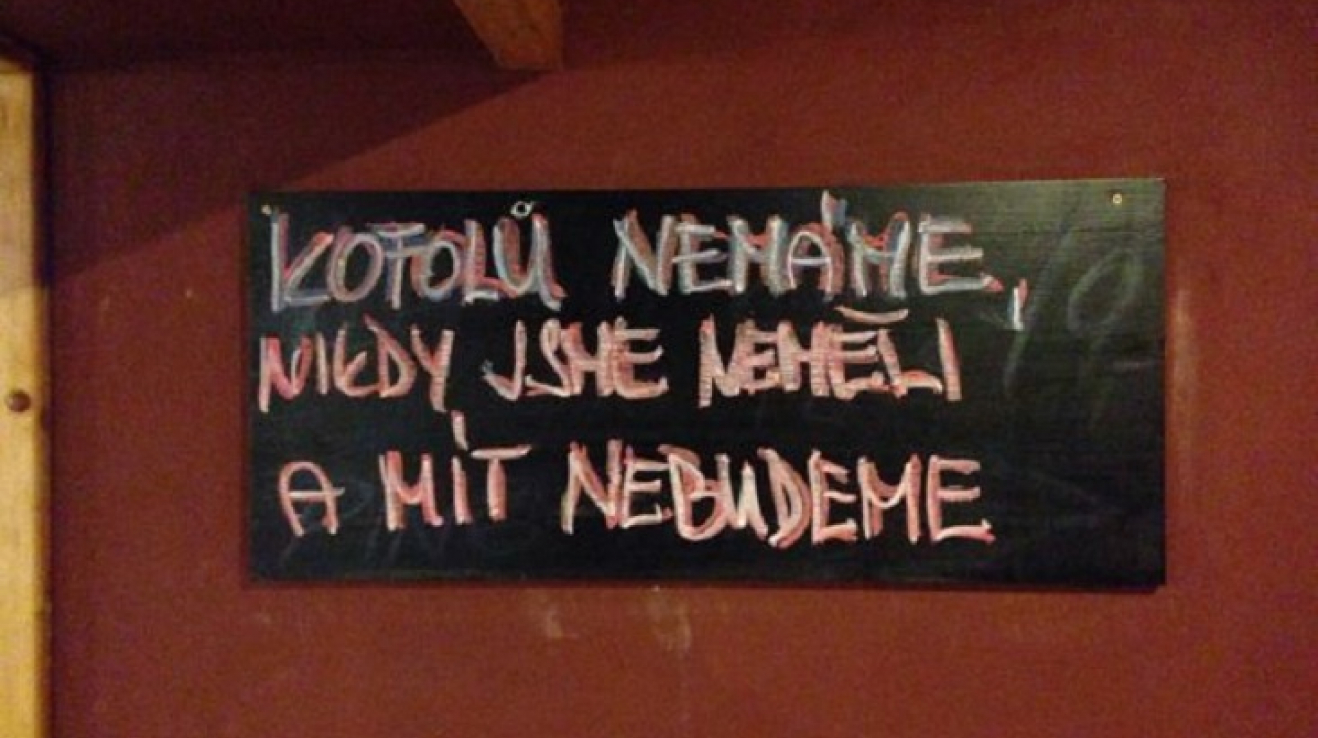 KOFOLU NEMÁME,
NIKDY JSME NEMĚLI
A MÍT NEBUDEME